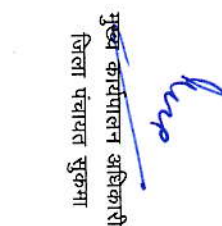 मुख्य कार्यपालन अधिकारी
जिला पंचायत सुकमा